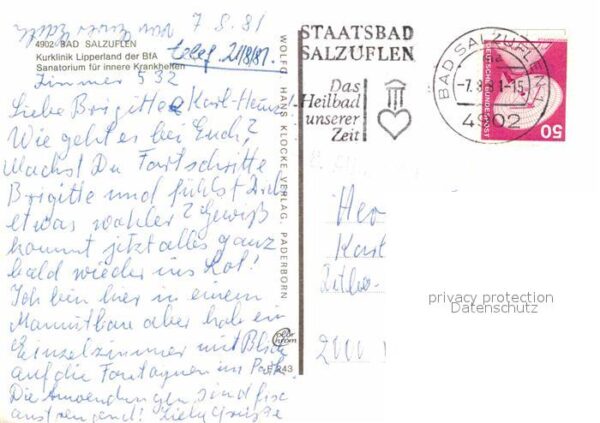 von Eurer Edith
7.8.81
4902 BAD SALZUFLEN
Kurklinik Lipperland der BfA
Sanatorium für innere Krankheiten
telef. 21/8/81.
Zimmer 532
Liebe Brigitte Karl-Heinz
Wie geht es bei Euch?
Machst Du Fortschritte
Brigitte und fühlst Dich
etwas wohler? Gewiß
kommt jetzt alles ganz
bald wieder ins Lot!
Ich bin hier in einem
aber hab ein
Einzelzimmer mit Blick
auf die Fontaynen im Park.
Die Anwendungen sind
anstrengend! Liebe Grüße
WOLFG. HANS KLOCKE VERLAG, PADERBORN
STAATSBAD
SALZUFLEN
Das
Heilbad
unserer
Zeit
BAD SALZUFLEN 1
-7.8.81-15
4902
DEUTSCHE BUNDESPOST
50
Her
Karl
privacy protection
Datenschutz